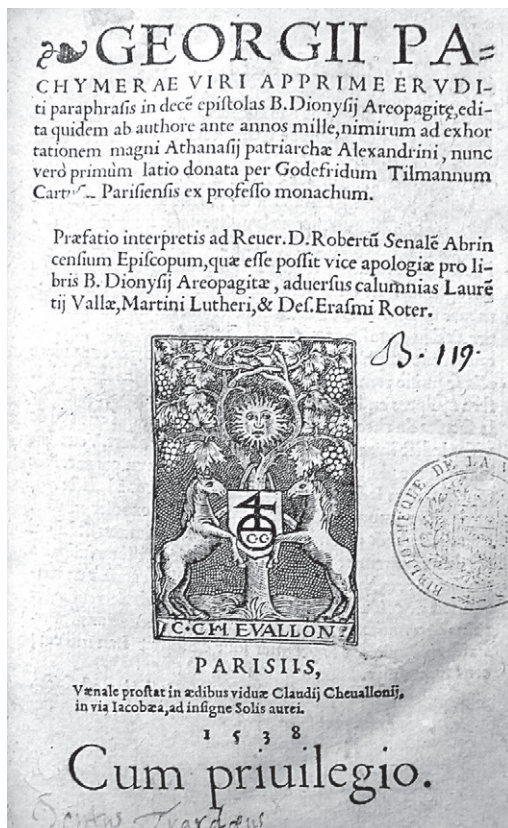 GEORGII PA=
CHYMERAE VIRI APPRIME ERVDI-
ti paraphrasis in decẽ epistolas B. Dionysij Areopagitę, edi-
ta quidem ab authore ante annos mille, nimirum ad exhor
tationem magni Athanasij patriarchæ Alexandrini, nunc
verò primùm latio donata per Godefridum Tilmannum
Parisiensis ex professo monachum.
Præfatio interpretis ad Reuer. D. Robertũ Senalẽ Abrin
censium Episcopum, quæ esse possit vice apologiæ pro li-
bris B. Dionysij Areopagitæ, aduersus calumnias Laurẽ
tij Vallæ, Martini Lutheri, & Des. Erasmi Roter.
B. 119.
C C
C. CHEVALLON
BIBLIOTHEQUE DE LA
PARISIIS,
Vænale prostat in ædibus viduæ Claudij Cheuallonij,
in via Iacobæa, ad insigne Solis aurei.
1538
Cum priuilegio.